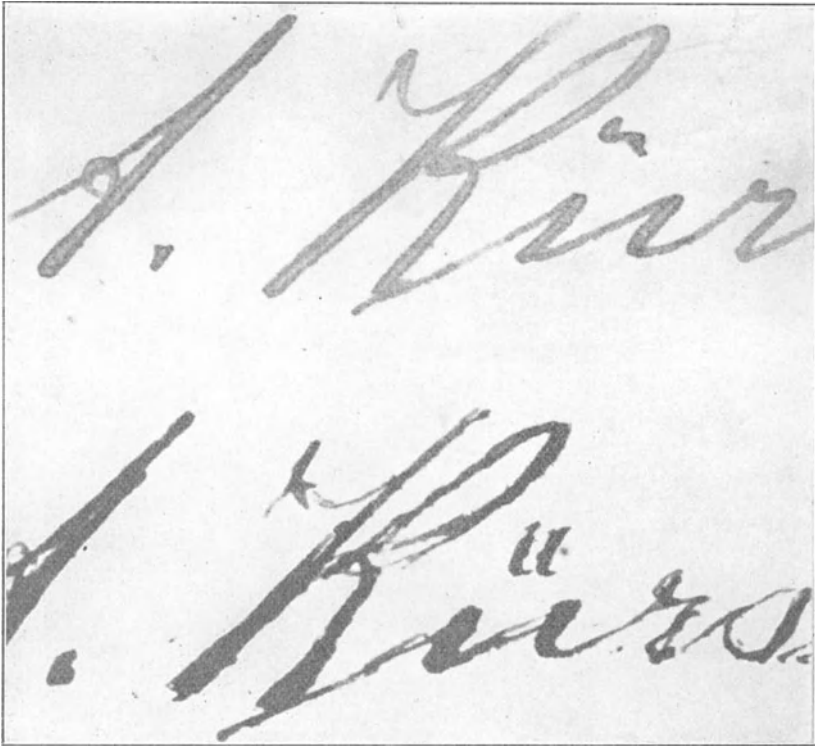 A. Kür
A. Kürs